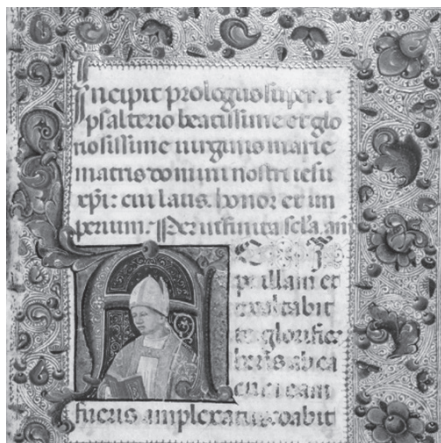 Incipit prologus super
psalterio beatissime et glo
riosissime uirginis marie
matris domini nostri iesu
xpi: cui laus. honor et im
perium: Per infinita scła. am̄
illam et
exaltabit
te: glorifica
beris ab ea
cū eam
fueris amplexatus: dabit